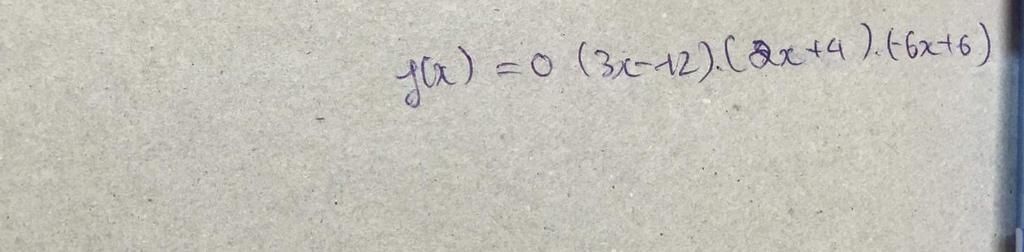 f(x) = 0 (3x-12).(2x+4).(-6x+6)